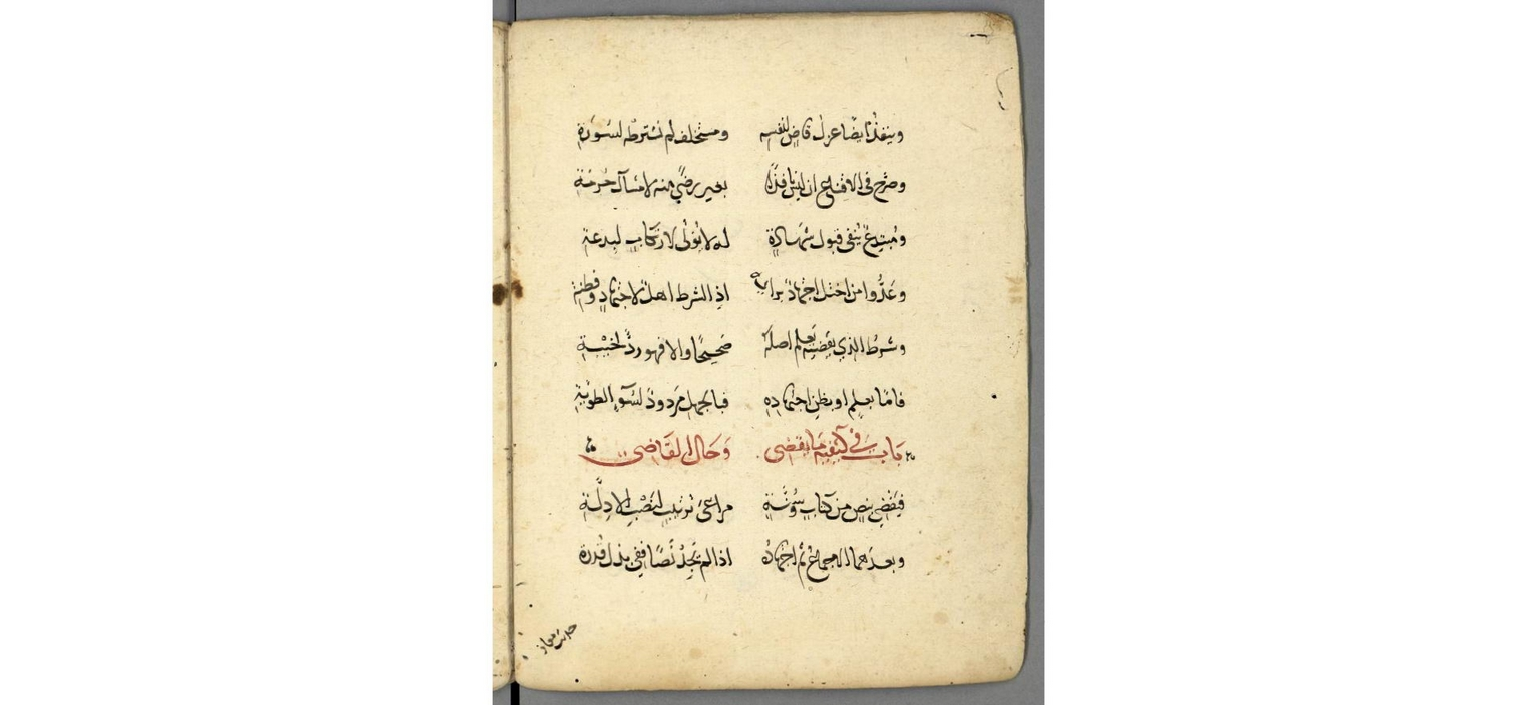 وينفذ ايضا عزل قاض لنفسه ومستخلف لم نشترطه لسورة
وصرح في الاقناع ان ليس نافذا بغير رضى منه لامساك حرمة
ومبتدع ينفى قبول شهادة له لا تولى لارتكاب لبدعة
وعدوا من اختل اجتهاد برايه اذ الشرط اهل لاجتهاد وفطنة
وشرط الذي يقضيه يعلم اصله صحيحا والا فهو رد لخيبة
فاما بعلم او بظن اجتهاده فبالجهل مردود لسوء الطوية
باب في كيفية ما يقضى وحال القاضي
فيقضي بنص من كتاب وسنة مراعى ترتيب لنصب الادلة
وبعدهما الاجماع ثم اجتهاد اذا لم تجد نصا ففي بذل قدرة
حديث معاذ